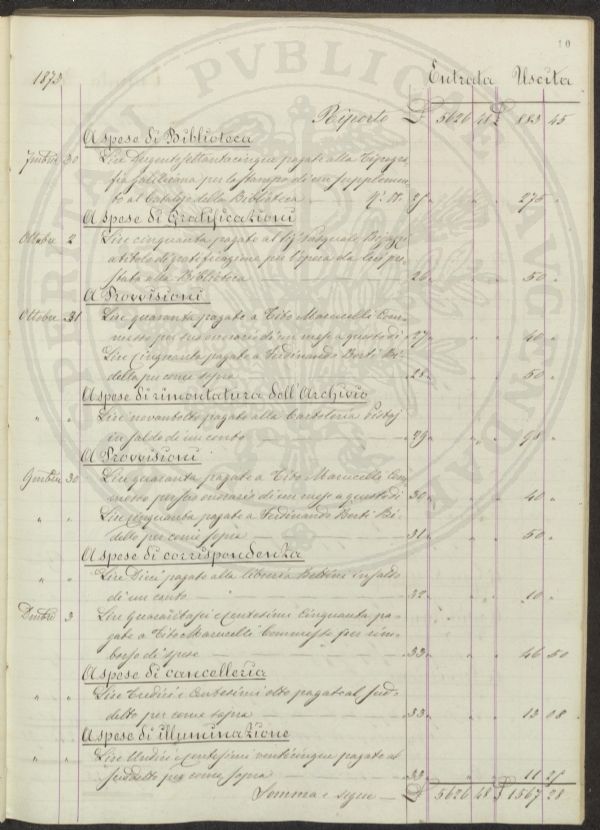 10
1873 Entrata Uscita
Riporto £ 5626 48 £ 883 45
A spese di Biblioteca
7mbre 30 Lire Dugento settanta cinque pagate alla Tipogra-
fia Galileiana per la stampa di un supplemen-
to al Catalogo della Biblioteca 25 " " " 275 "
A spese di Gratificazioni
Ottobre 2 Lire cinquanta pagate al Sig. Pasquale
a titolo di gratificazione per l'opera da lui pre-
stata alla Biblioteca 26 " " " 50 "
A Provvisioni
Ottobre 31 Lire quaranta pagate a Tito Marucelli Com-
messo per suo onorario di un mese a questo dì 27 " " " 40 "
Lire Cinquanta pagate a Ferdinando Berti Bi-
dello per come sopra 28 " " " 50 "
A spese di rimontatura dell'Archivio
" " Lire novantotto pagate alla Cartoleria
in saldo di un conto 29 " " " 98 "
A Provvisioni
9mbre 30 Lire quaranta pagate a Tito Marucelli Com-
messo per suo onorario di un mese a questo dì 30 " " " 40 "
" " Lire cinquanta pagate a Ferdinando Berti Bi-
dello per come sopra 31 " " " 50 "
A spese di corrispondenza
" " Lire Dieci pagate alla libreria Bettini in saldo
di un conto 32 " " " 10 "
Dmbre 3 Lire Quarantasei e Centesimi Cinquanta pa-
gate a Tito Marucelli Commesso per rim-
borso di spese 33 " " " 46 50
A spese di cancelleria
" " Lire Tredici e Centesimi otto pagate al sud-
detto per come sopra 33 " " " 13 08
A spese di illuminazione
" " Lire Undici e centesimi venticinque pagate al
suddetto per come sopra 33 " " " 11 25
Somma e segue £ 5626 48 £ 1567 28